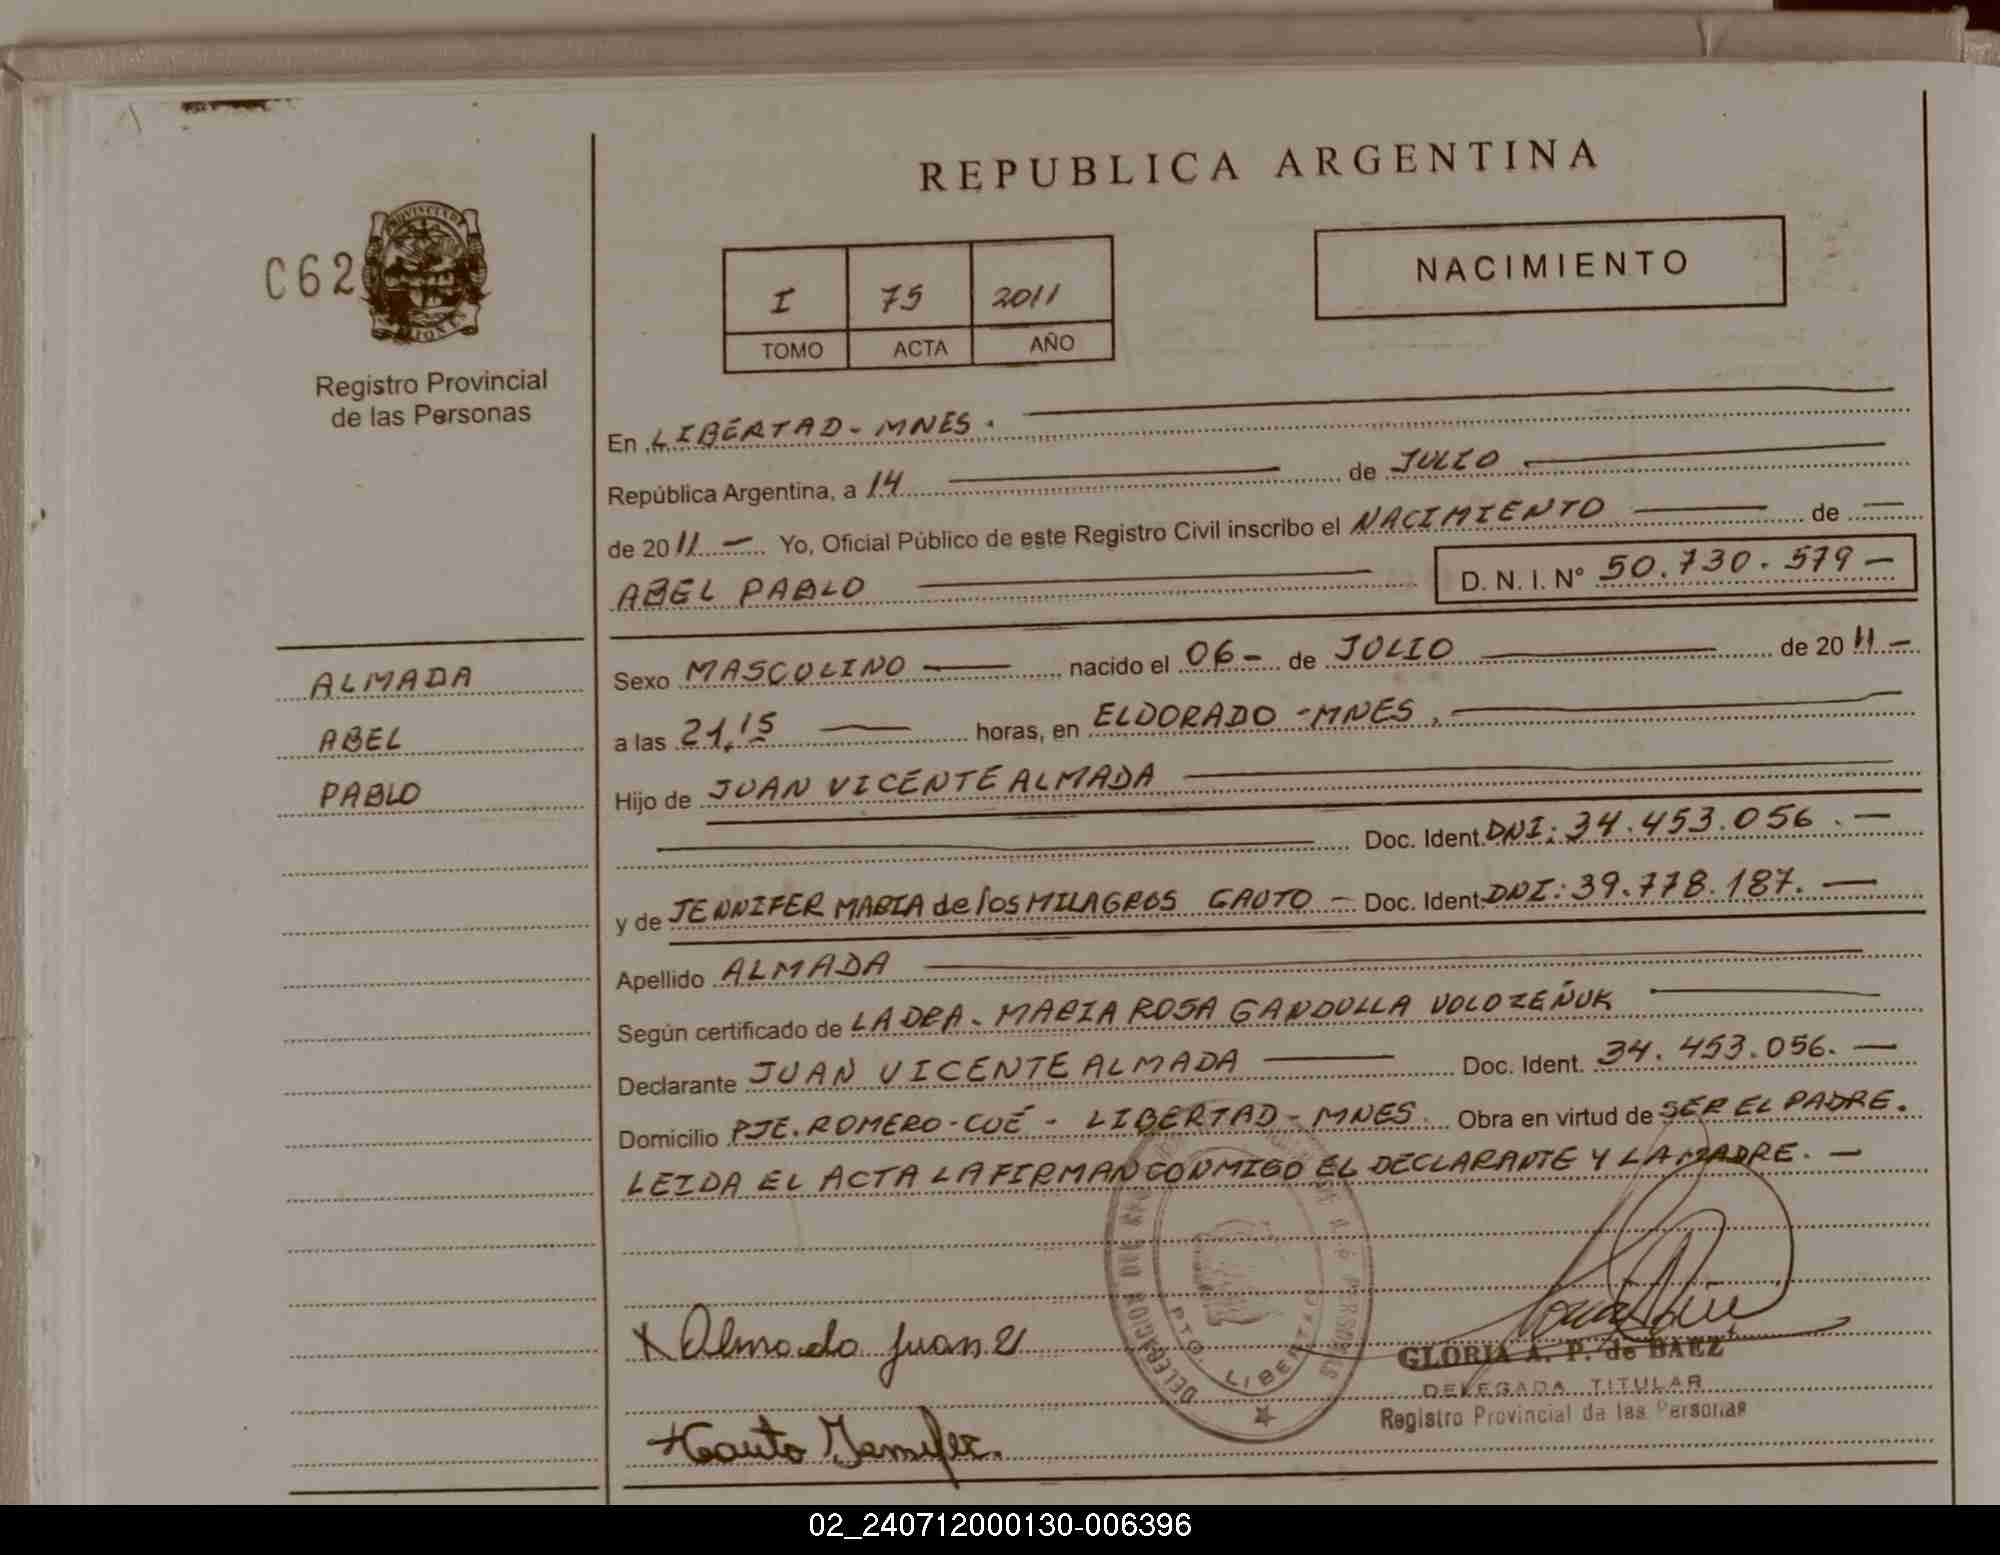 REPUBLICA ARGENTINA
C62
PROVINCIA
MISIONES
Registro Provincial
de las Personas
I 75 2011
TOMO ACTA AÑO
NACIMIENTO
En LIBERTAD - MNES.
República Argentina, a 14 de JULIO
de 2011 - Yo, Oficial Público de este Registro Civil inscribo el NACIMIENTO de
ABEL PABLO D. N. I. N° 50.730.579 -
ALMADA
ABEL
PABLO
Sexo MASCULINO nacido el 06 - de JULIO de 2011 -
a las 21,15 horas, en ELDORADO - MNES,
Hijo de JUAN VICENTE ALMADA
Doc. Ident. DNI: 34.453.056. -
y de JENNIFER MARIA de los MILAGROS GAUTO - Doc. Ident. DNI: 39.778.187. -
Apellido ALMADA
Según certificado de LA DRA. MARIA ROSA GANDULLA VOLOZEÑUK
Declarante JUAN VICENTE ALMADA Doc. Ident. 34.453.056. -
Domicilio PJE. ROMERO-CUÉ - LIBERTAD - MNES. Obra en virtud de SER EL PADRE.
LEIDA EL ACTA LA FIRMAN CONMIGO EL DECLARANTE Y LA MADRE. -
DELEGACION DEL PERSONAS
PTO. LIBERTAD
Almada Juan V
Gauto Jennifer.
GLORIA A. P. de BAEZ
DELEGADA TITULAR
Registro Provincial de las Personas
02_240712000130-006396